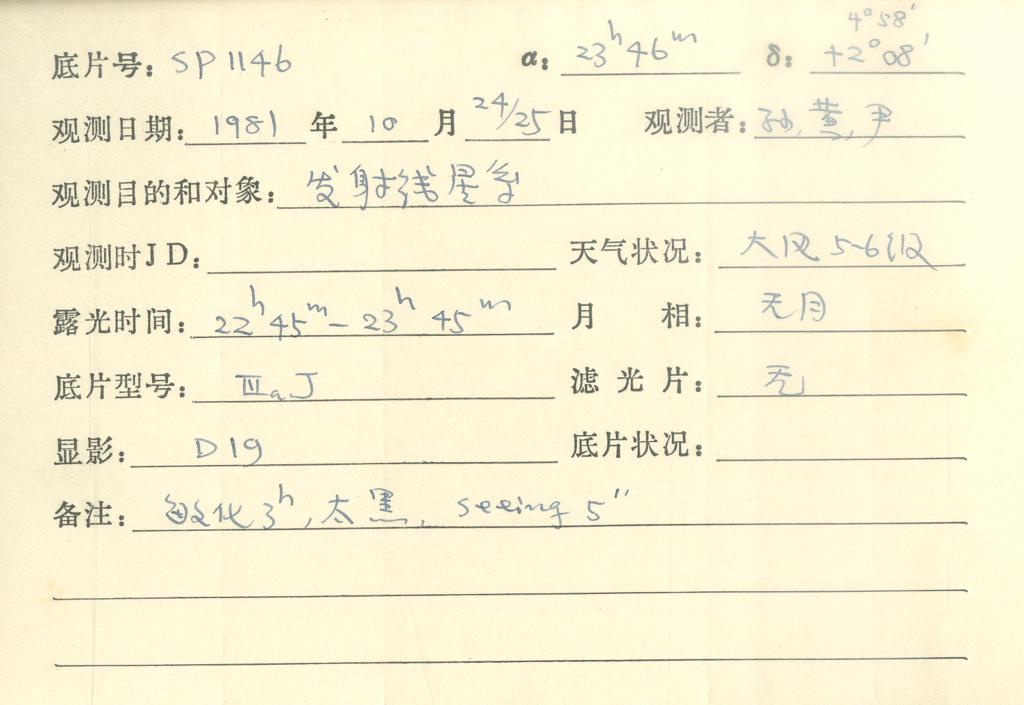 4°58′
底片号：SP1146 α：23ʰ46ᵐ δ：+2°08′
观测日期：1981年10月24/25日 观测者：孙，黄，尹
观测目的和对象：发射线星系
观测时JD： 天气状况：大风5-6级
露光时间：22ʰ45ᵐ－23ʰ45ᵐ 月相：无月
底片型号：ⅢaJ 滤光片：无
显影：D19 底片状况：
备注：敏化3ʰ，太黑，seeing 5″